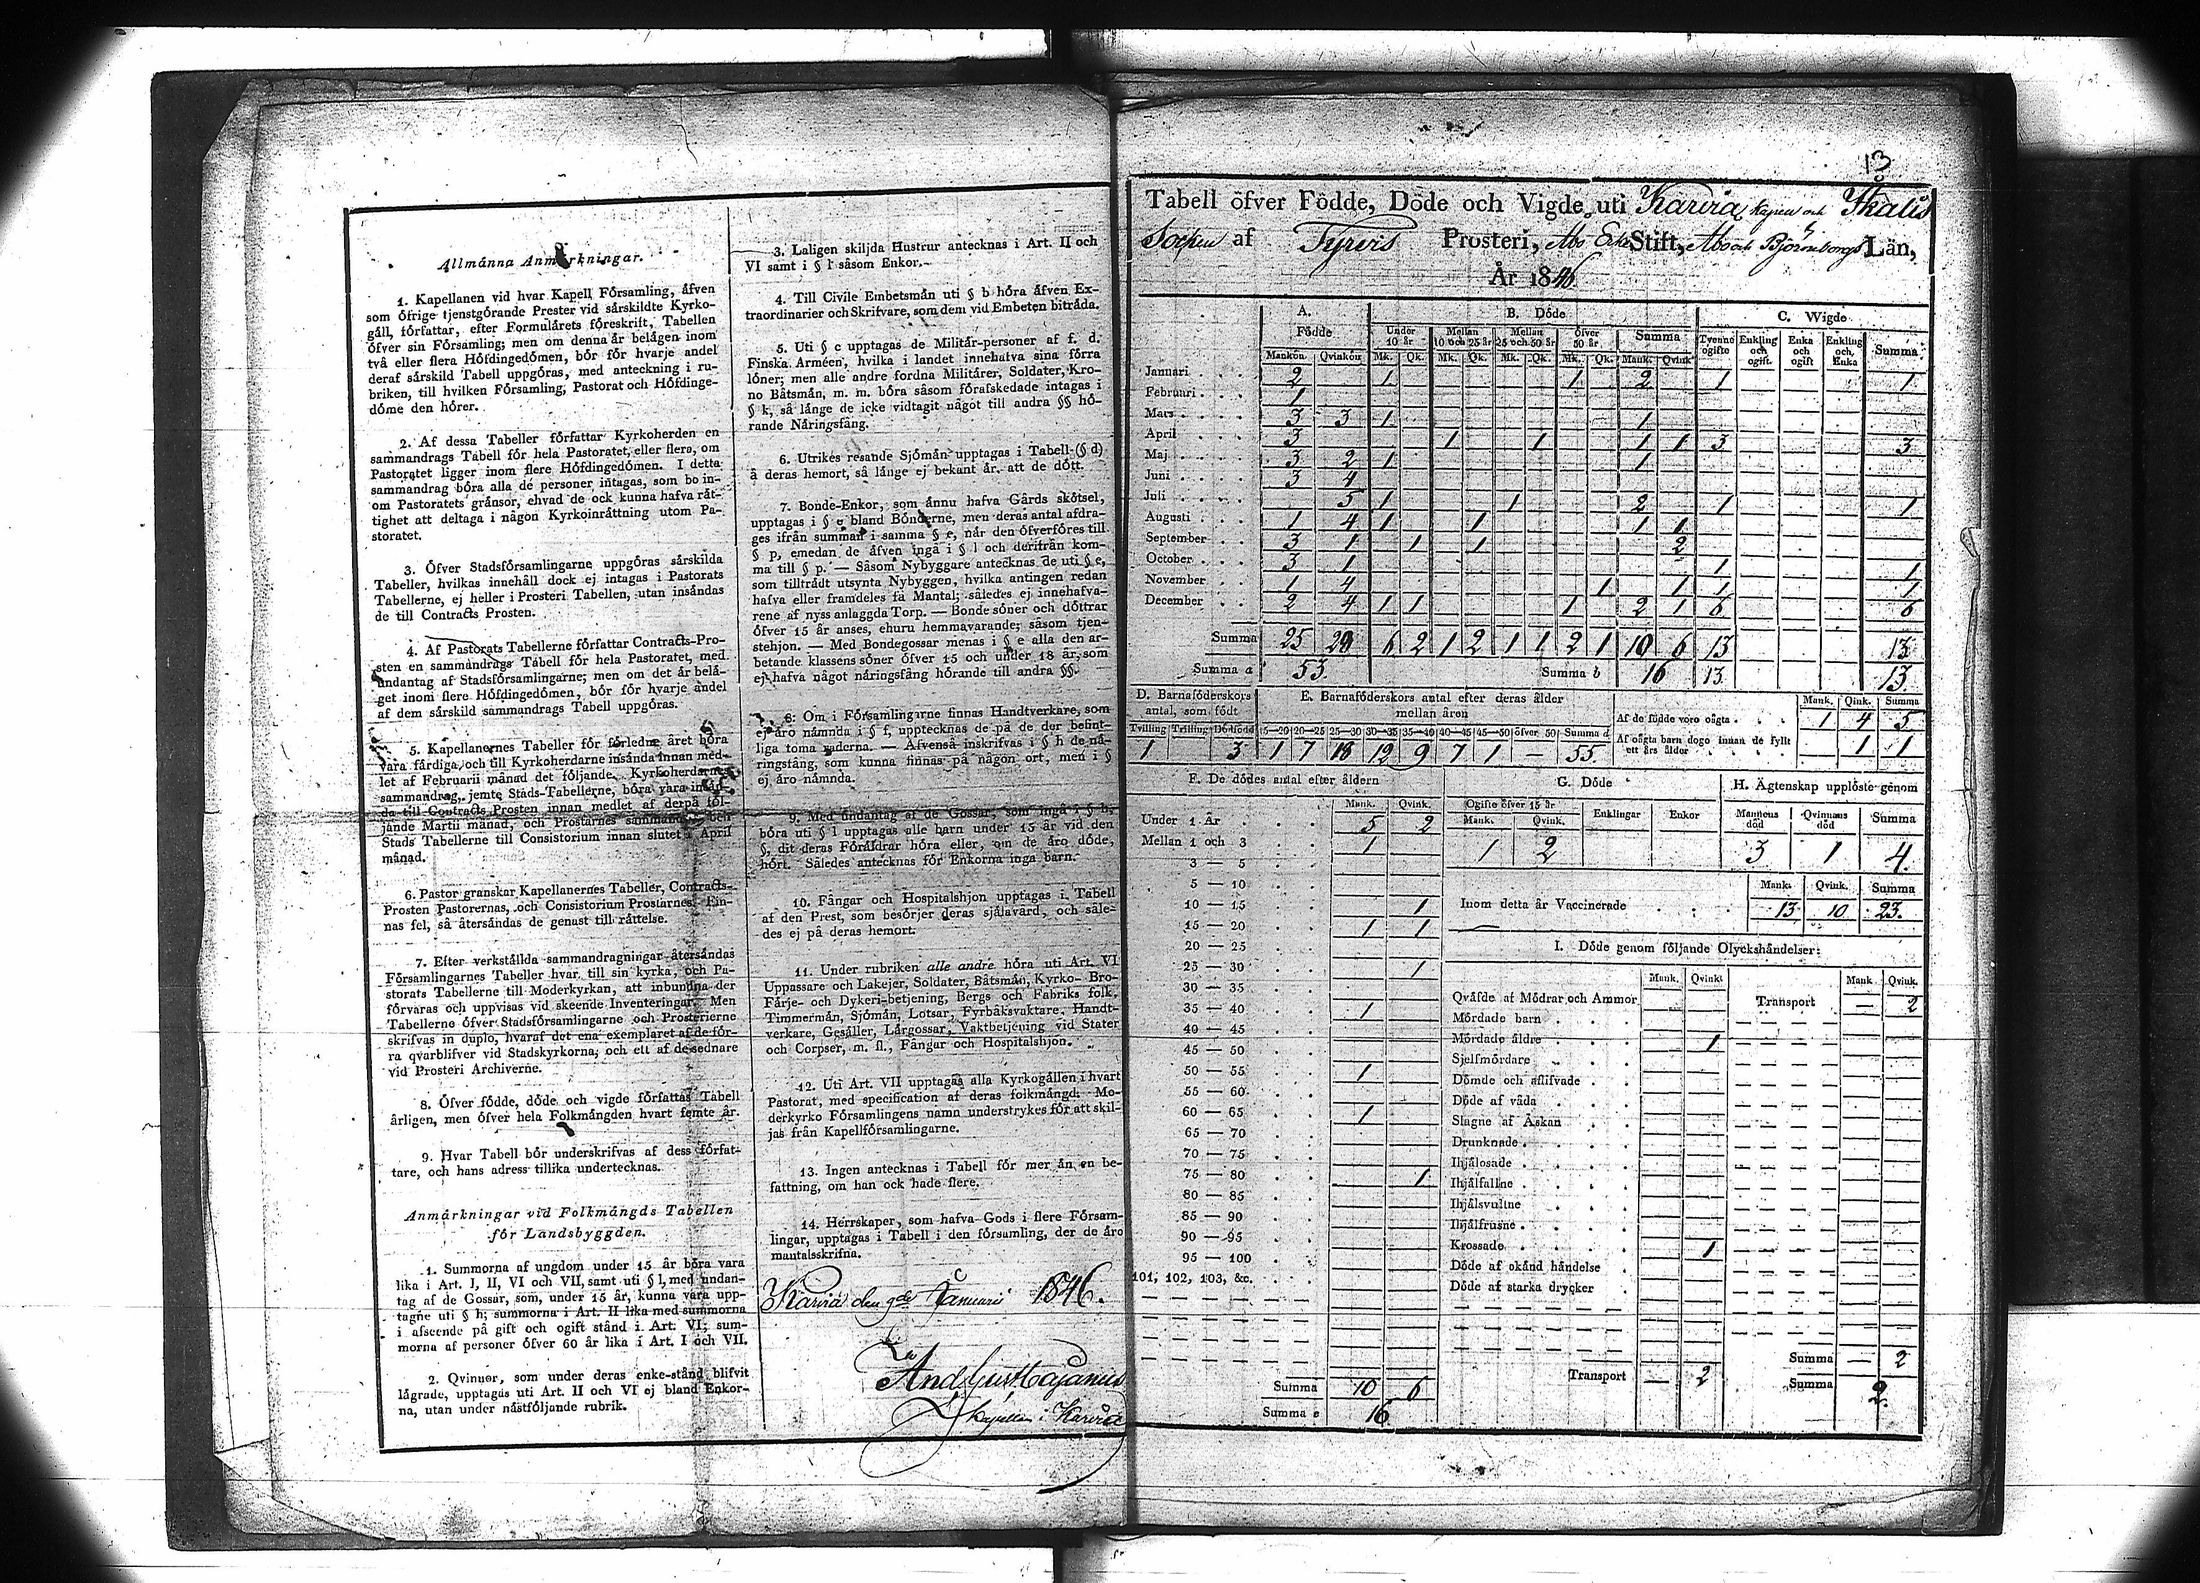 Allmänna Anmärkningar.
1. Kapellanen vid hvar Kapell Församling, äfven
som öfrige tjenstgörande Prester vid särskildte Kyrko-
gäll, författar, efter Formulärets föreskrift, Tabellen
öfver sin Församling; men om denna är belägen inom
två eller flera Höfdingedömen, bör för hvarje andel
deraf särskild Tabell uppgöras, med anteckning i ru-
briken, till hvilken Församling, Pastorat och Höfdinge-
döme den hörer.
2. Af dessa Tabeller författar Kyrkoherden en
sammandrags Tabell för hela Pastoratet, eller flera, om
Pastoratet ligger inom flere Höfdingedömen. I detta
sammandrag böra alla de personer intagas, som bo in-
om Pastoratets gränsor, ehvad de ock kunna hafva rät-
tighet att deltaga i någon Kyrkoinrättning utom Pa-
storatet.
3. Öfver Stadsförsamlingarne uppgöras särskilda
Tabeller, hvilkas innehåll dock ej intagas i Pastorats
Tabellerne, ej heller i Prosteri Tabellen, utan insändas
de till Contracts Prosten.
4. Af Pastorats Tabellerne författar Contracts-Pro-
sten en sammandrags Tabell för hela Pastoratet, med
undantag af Stadsförsamlingarne; men om det är belä-
get inom flere Höfdingedömen, bör för hvarje andel
af dem särskild sammandrags Tabell uppgöras.
5. Kapellanernes Tabeller för förledne året böra
vara färdiga, och till Kyrkoherdarne insända innan med-
let af Februarii månad det följande. Kyrkoherdarnes
sammandrag, jemte Stads-Tabellerne, böra vara insän-
da till Contracts Prosten innan medlet af derpå föl-
jande Martii månad, och Prostarnes sammandrag och
Stads Tabellerne till Consistorium innan slutet af April
månad.
6. Pastor granskar Kapellanernes Tabeller, Contracts-
Prosten Pastorernas, och Consistorium Prostarnes. Fin-
nas fel, så återsändas de genast till rättelse.
7. Efter verkställda sammandragningar återsändas
Församlingarnes Tabeller hvar till sin kyrka, och Pa-
storats Tabellerne till Moderkyrkan, att inbundna der
förvaras och uppvisas vid skeende Inventeringar. Men
Tabellerne öfver Stadsförsamlingarne och Prosterierne
skrifvas in duplo, hvaraf det ena exemplaret af de för-
ra qvarblifver vid Stadskyrkorna, och ett af de sednare
vid Prosteri Archiverne.
8. Öfver födde, döde och vigde författas Tabell
årligen, men öfver hela Folkmängden hvart femte år.
9. Hvar Tabell bör underskrifvas af dess förfat-
tare, och hans adress tillika undertecknas.
Anmärkningar vid Folkmängds Tabellen
för Landsbyggden.
1. Summorna af ungdom under 15 år böra vara
lika i Art. I, II, VI och VII, samt uti § l, med undan-
tag af de Gossar, som, under 15 år, kunna vara upp-
tagne uti § h; summorna i Art. II lika med summorna
i afseende på gift och ogift stånd i Art. VI; sum-
morna af personer öfver 60 år lika i Art. I och VII.
2. Qvinnor, som under deras enke-stånd blifvit
lägrade, upptagas uti Art. II och VI ej bland Enkor-
na, utan under nästföljande rubrik.
3. Laligen skiljda Hustrur antecknas i Art. II och
VI samt i § l såsom Enkor.
4. Till Civile Embetsmän uti § b höra äfven Ex-
traordinarier och Skrifvare, som dem vid Embeten biträda.
5. Uti § c upptagas de Militär-personer af f. d.
Finska Arméen, hvilka i landet innehafva sina förra
löner; men alle andre fordna Militärer, Soldater, Kro-
no Båtsmän, m. m. böra såsom förafskedade intagas i
§ k, så länge de icke vidtagit något till andra §§ hö-
rande Näringsfång.
6. Utrikes resande Sjömän upptagas i Tabell (§ d)
å deras hemort, så länge ej bekant är, att de dött.
7. Bonde-Enkor, som ännu hafva Gårds skötsel,
upptagas i § e bland Bönderne, men deras antal afdra-
ges ifrån summan i samma § e, när den öfverföres till
§ p, emedan de äfven ingå i § l och derifrån kom-
ma till § p. — Såsom Nybyggare antecknas de uti § e,
som tillträdt utsynta Nybyggen, hvilka antingen redan
hafva eller framdeles få Mantal; således ej innehafva-
rene af nyss anlaggda Torp. — Bonde söner och döttrar
öfver 15 år anses, ehuru hemmavarande, såsom tjen-
stehjon. — Med Bondegossar menas i § e alla den ar-
betande klassens söner öfver 15 och under 18 år, som
ej hafva något näringsfång hörande till andra §§.
8: Om i Församlingarne finnas Handtverkare, som
ej äro nämnda i § f, upptecknas de på de der befint-
liga toma raderna. — Äfvenså inskrifvas i § h de nä-
ringsfång, som kunna finnas på någon ort, men i §
ej äro nämnda.
9. Med undantag af de Gossar, som ingå i § h,
böra uti § l upptagas alle barn under 15 år vid den
§, dit deras Föräldrar höra eller, om de äro döde,
hört. Således antecknas för Enkorna inga barn.
10. Fångar och Hospitalshjon upptagas i Tabell
af den Prest, som besörjer deras själavård, och såle-
des ej på deras hemort.
11. Under rubriken alle andre höra uti Art. VI
Uppassare och Lakejer, Soldater, Båtsmän, Kyrko- Bro-
Färje- och Dykeri-betjening, Bergs och Fabriks folk,
Timmermän, Sjömän, Lotsar, Fyrbåksvaktare, Handt-
verkare, Gesäller, Lärgossar, Vaktbetjening vid Stater
och Corpser, m. fl., Fångar och Hospitalshjon.
12. Uti Art. VII upptagas alla Kyrkogällen i hvart
Pastorat, med specification af deras folkmängd. Mo-
derkyrko Församlingens namn understrykes för att skil-
jas från Kapellförsamlingarne.
13. Ingen antecknas i Tabell för mer än en be-
fattning, om han ock hade flere.
14. Herrskaper, som hafva Gods i flere Försam-
lingar, upptagas i Tabell i den församling, der de äro
mantalsskrifna.
Karvia den 9de Januari 1846.
And. Gust. Cajanus
Kapellan i Karvia
13
Tabell öfver Födde, Döde och Vigde uti Karvia Kapell och Ikalis
Socken af Tyrvis Prosteri, Åbo Erke Stift, Åbo och Björneborgs Län,
År 1846
A. B. Döde C. Wigde
Födde Under 10 år Mellan 10 och 25 år Mellan 25 och 50 år Öfver 50 år Summa Tvenne ogifte Enkling och ogift. Enka och ogift Enkling och Enka Summa
Mankön Qvinkön Mk. Qk. Mk. Qk. Mk. Qk. Mk. Qk. Mank. Qvink
Januari 2 1 1 2 1 1
Februari 1
Mars 3 3 1 1
April 3 1 1 1 1 3 3
Maj 3 2 1 1
Juni 3 4
Juli 5 1 1 2 1 1
Augusti 1 4 1 1 1 1
September 3 1 1 1 2
October 3 1 1 1
November 1 4 1 1 1 1
December 2 4 1 1 1 2 1 6 6
Summa 25 28 6 2 1 2 1 1 2 1 10 6 13 13
Summa a 53. Summa b 16 13 13.
D. Barnaföderskors antal, som födt E. Barnaföderskors antal efter deras ålder mellan åren Mank. Qink. Summa
Af de födde voro oägta 1 4 5
Tvilling Trilling Dödfödd 15—20 20—25 25—30 30—35 35—40 40—45 45—50 öfver 50 Summa d Af oägta barn dogo innan de fyllt ett års ålder 1 1
1 3 1 7 18 12 9 7 1 — 55.
F. De dödes antal efter åldern G. Döde H. Ägtenskap upplöste genom
Mank. Qvink. Ogifte öfver 15 år Enklingar Enkor Mannens död Qvinnans död Summa
Under 1 År 5 2 Mank. Qvink.
Mellan 1 och 3 1 1 2 3 1 4.
3 — 5
5 — 10 Mank. Qvink. Summa
10 — 15 1 Inom detta år Vaccinerade 13 10 23.
15 — 20 1 1
20 — 25 I. Döde genom följande Olyckshändelser:
25 — 30 1 Mank. Qvink. Mank. Qvink.
30 — 35 Qväfde af Mödrar och Ammor Transport — 2
35 — 40 1 Mördade barn
40 — 45 Mördade äldre 1
45 — 50 Sjelfmördare
50 — 55 1 Dömde och aflifvade
55 — 60 Döde af våda
60 — 65 1 Slagne af Åskan
65 — 70 Drunknade
70 — 75 Ihjälosade
75 — 80 1 Ihjälfallne
80 — 85 Ihjälsvultne
85 — 90 Ihjälfrusne
90 — 95 Krossade 1
95 — 100 Döde af okänd händelse
101, 102, 103, &c. Döde af starka drycker
Summa — 2
Transport — 2 Summa 2.
Summa 10 6
Summa e 16